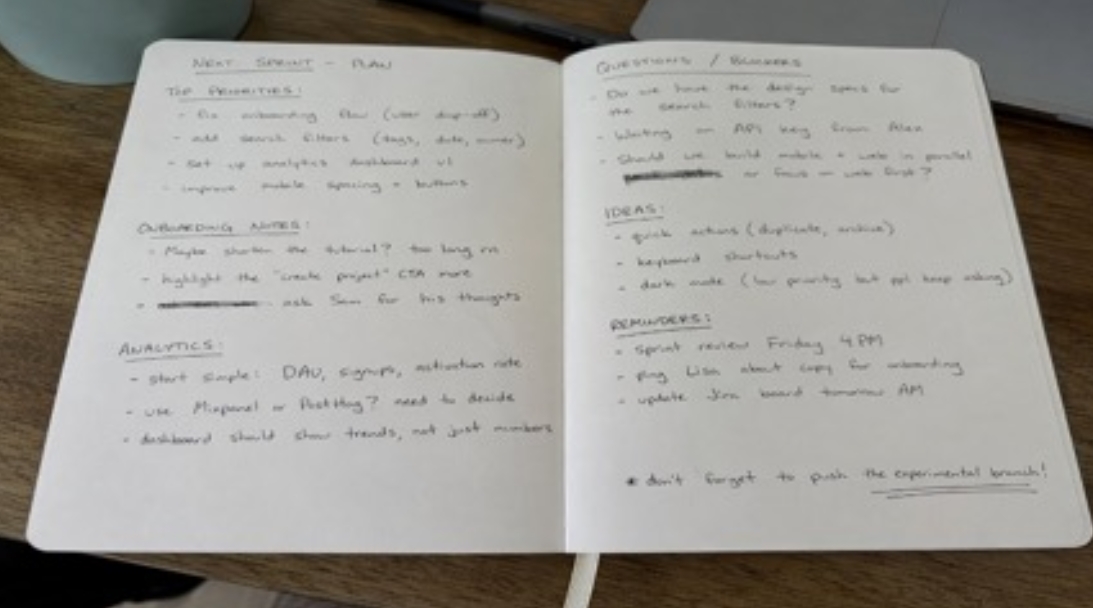 NEXT SPRINT - PLAN
TOP PRIORITIES:
- fix onboarding flow (user drop-off)
- add search filters (tags, date, owner)
- set up analytics dashboard v1
- improve mobile spacing + buttons
ONBOARDING NOTES:
- Maybe shorten the tutorial? too long rn
- highlight the "create project" CTA more
- ask Sam for his thoughts
ANALYTICS:
- start simple: DAU, signups, activation rate
- use Mixpanel or PostHog? need to decide
- dashboard should show trends, not just numbers
QUESTIONS / BLOCKERS
- Do we have the design specs for
the search filters?
- Waiting on API key from Alex
- Should we build mobile + web in parallel
or focus on web first?
IDEAS:
- quick actions (duplicate, archive)
- keyboard shortcuts
- dark mode (low priority but ppl keep asking)
REMINDERS:
- sprint review Friday 4 PM
- ping Lisa about copy for onboarding
- update Jira board tomorrow AM
* don't forget to push the experimental branch!